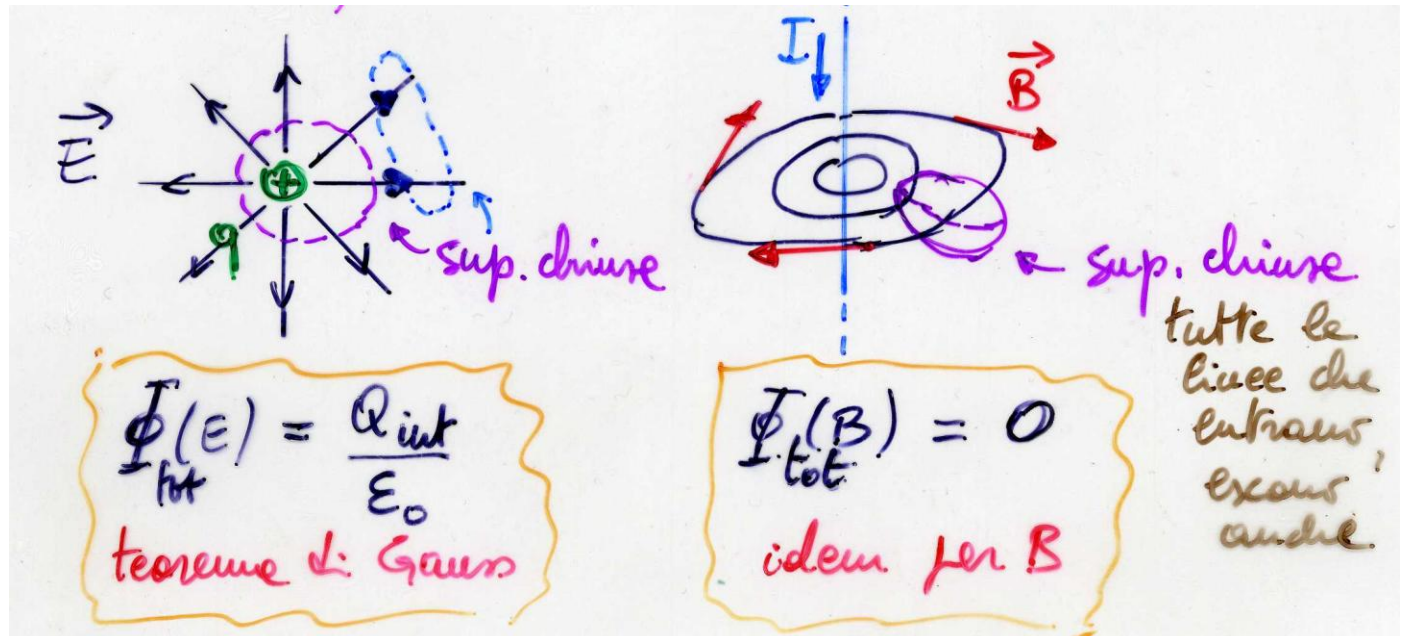 E
+
q
sup. chiuse
Φtot(E) = Qint / ε0
teorema di Gauss
I
B
sup. chiuse
tutte le
linee che
entrano,
escono
anche
Φtot(B) = 0
idem per B